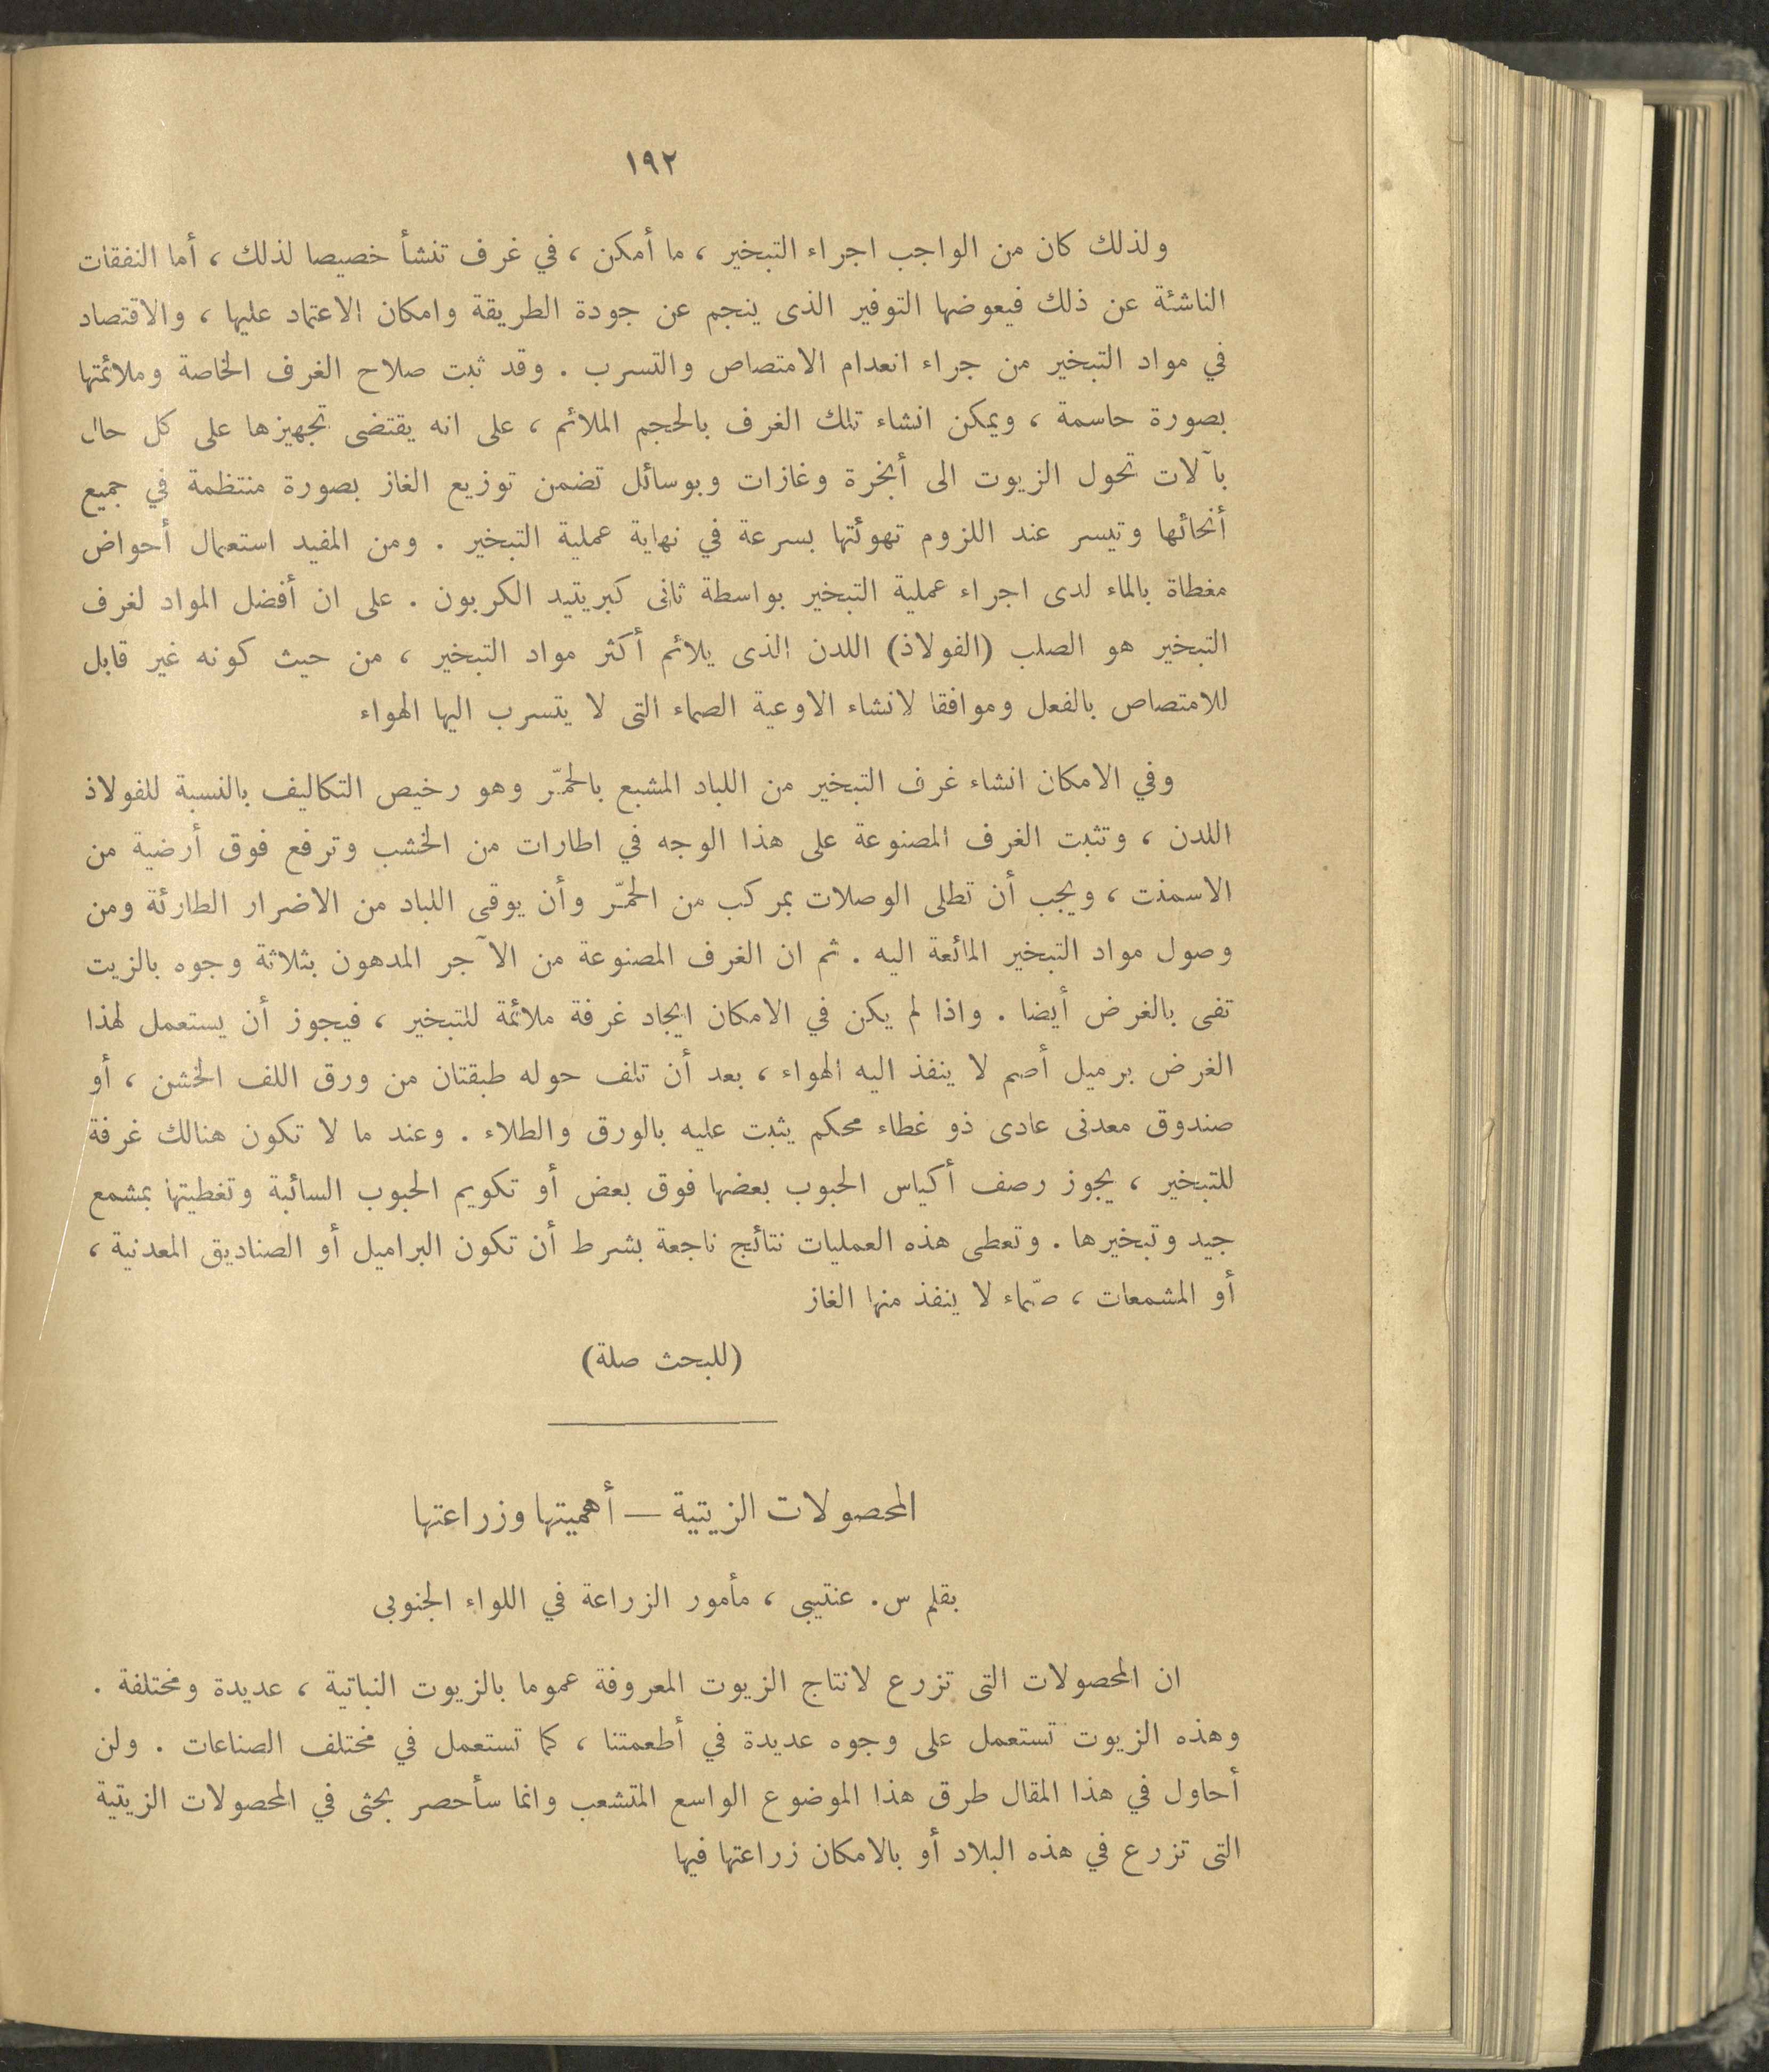 ١٩٢
ولذلك كان من الواجب اجراء التبخير ، ما أمكن ، في غرف تنشأ خصيصا لذلك ، أما النفقات
الناشئة عن ذلك فيعوضها التوفير الذى ينجم عن جودة الطريقة وامكان الاعتماد عليها ، والاقتصاد
في مواد التبخير من جراء انعدام الامتصاص والتسرب . وقد ثبت صلاح الغرف الخاصة وملائمتها
بصورة حاسمة ، ويمكن انشاء تلك الغرف بالحجم الملائم ، على انه يقتضى تجهيزها على كل حال
بآلات تحول الزيوت الى أبخرة وغازات وبوسائل تضمن توزيع الغاز بصورة منتظمة في جميع
أنحائها وتيسر عند اللزوم تهوئتها بسرعة في نهاية عملية التبخير . ومن المفيد استعمال أحواض
مغطاة بالماء لدى اجراء عملية التبخير بواسطة ثانى كبريتيد الكربون . على ان أفضل المواد لغرف
التبخير هو الصلب (الفولاذ) اللدن الذى يلائم أكثر مواد التبخير ، من حيث كونه غير قابل
للامتصاص بالفعل وموافقا لانشاء الاوعية الصماء التى لا يتسرب اليها الهواء
وفي الامكان انشاء غرف التبخير من اللباد المشبع بالحمّر وهو رخيص التكاليف بالنسبة للفولاذ
اللدن ، وتثبت الغرف المصنوعة على هذا الوجه في اطارات من الخشب وترفع فوق أرضية من
الاسمنت ، ويجب أن تطلى الوصلات بمركب من الحمّر وأن يوقى اللباد من الاضرار الطارئة ومن
وصول مواد التبخير المائعة اليه . ثم ان الغرف المصنوعة من الآجر المدهون بثلاثة وجوه بالزيت
تفى بالغرض أيضا . واذا لم يكن في الامكان ايجاد غرفة ملائمة للتبخير ، فيجوز أن يستعمل لهذا
الغرض برميل أصم لا ينفذ اليه الهواء ، بعد أن تلف حوله طبقتان من ورق اللف الخشن ، أو
صندوق معدنى عادى ذو غطاء محكم يثبت عليه بالورق والطلاء . وعند ما لا تكون هنالك غرفة
للتبخير ، يجوز رصف أكياس الحبوب بعضها فوق بعض أو تكويم الحبوب السائبة وتغطيتها بمشمع
جيد وتبخيرها . وتعطى هذه العمليات نتائج ناجعة بشرط أن تكون البراميل أو الصناديق المعدنية ،
أو المشمعات ، صمّاء لا ينفذ منها الغاز
(للبحث صلة)
المحصولات الزيتية — أهميتها وزراعتها
بقلم س. عنتيبى ، مأمور الزراعة في اللواء الجنوبى
ان المحصولات التى تزرع لانتاج الزيوت المعروفة عموما بالزيوت النباتية ، عديدة ومختلفة .
وهذه الزيوت تستعمل على وجوه عديدة في أطعمتنا ، كما تستعمل في مختلف الصناعات . ولن
أحاول في هذا المقال طرق هذا الموضوع الواسع المتشعب وانما سأحصر بحثى في المحصولات الزيتية
التى تزرع في هذه البلاد أو بالامكان زراعتها فيها